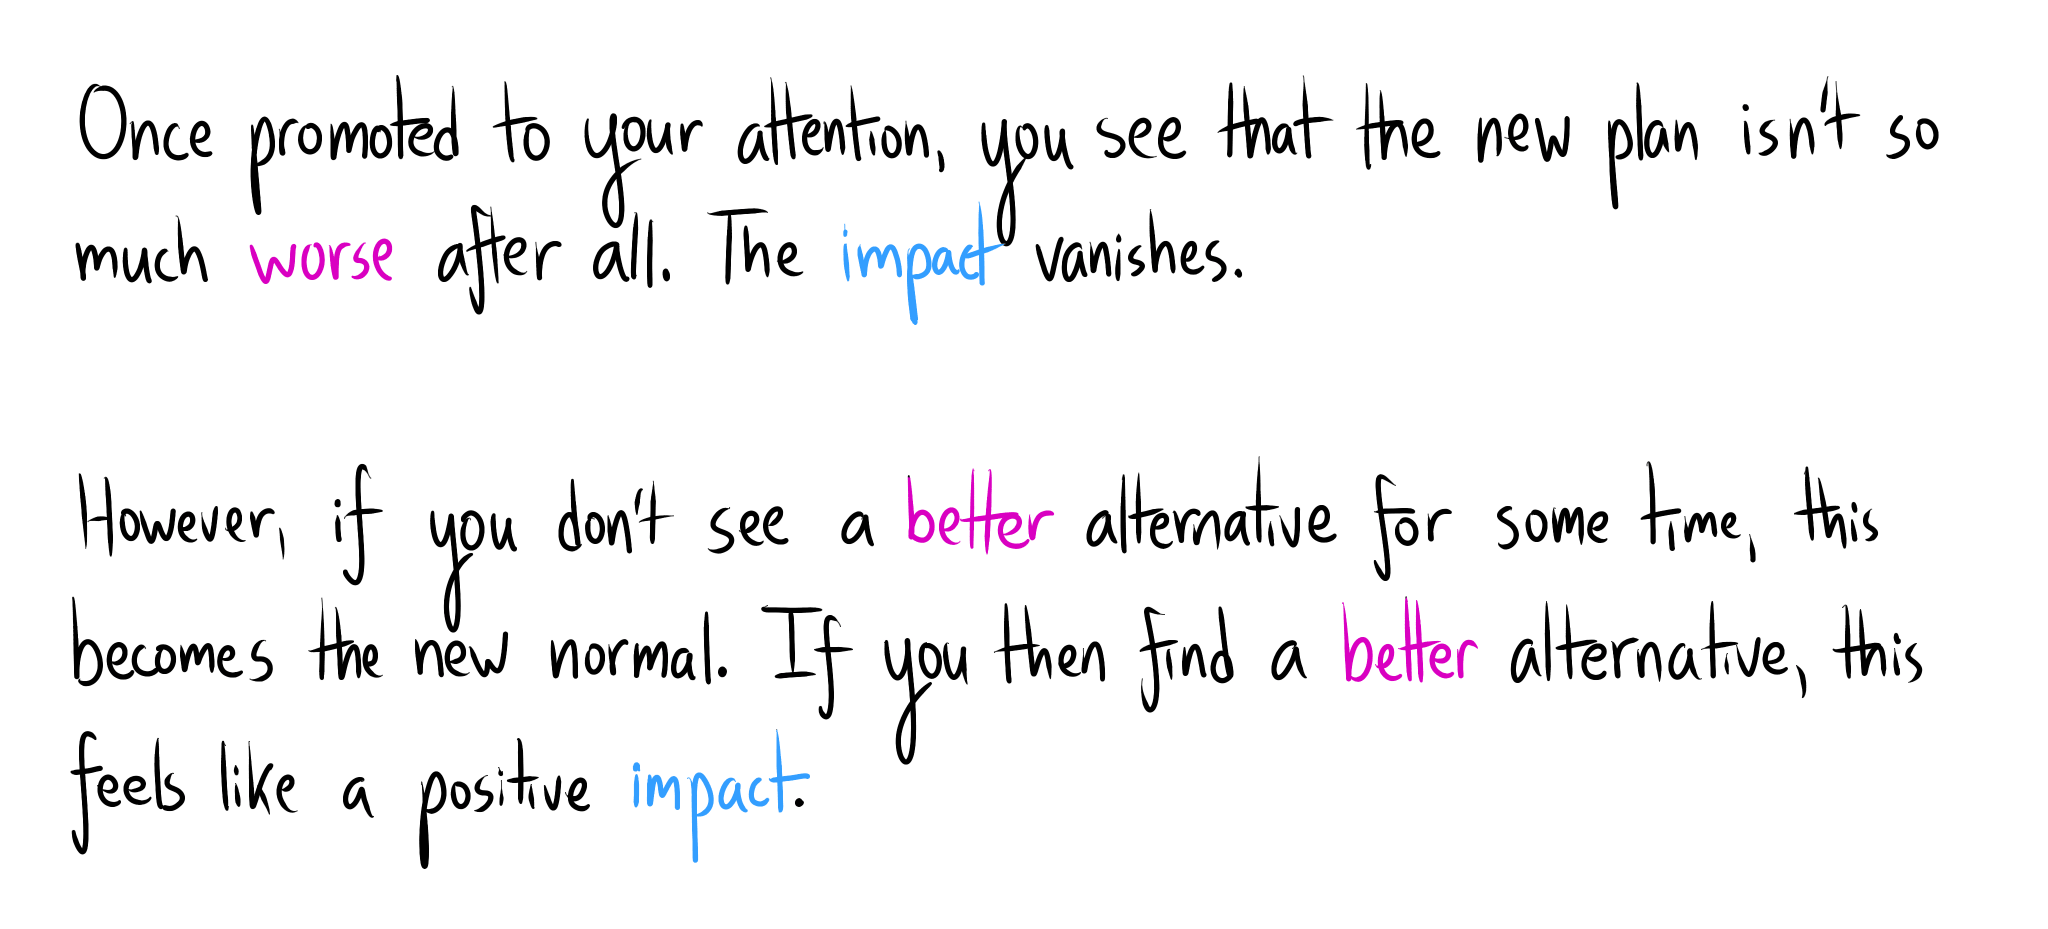 Once promoted to your attention, you see that the new plan isn't so
much worse after all. The impact vanishes.
However, if you don't see a better alternative for some time, this
becomes the new normal. If you then find a better alternative, this
feels like a positive impact.